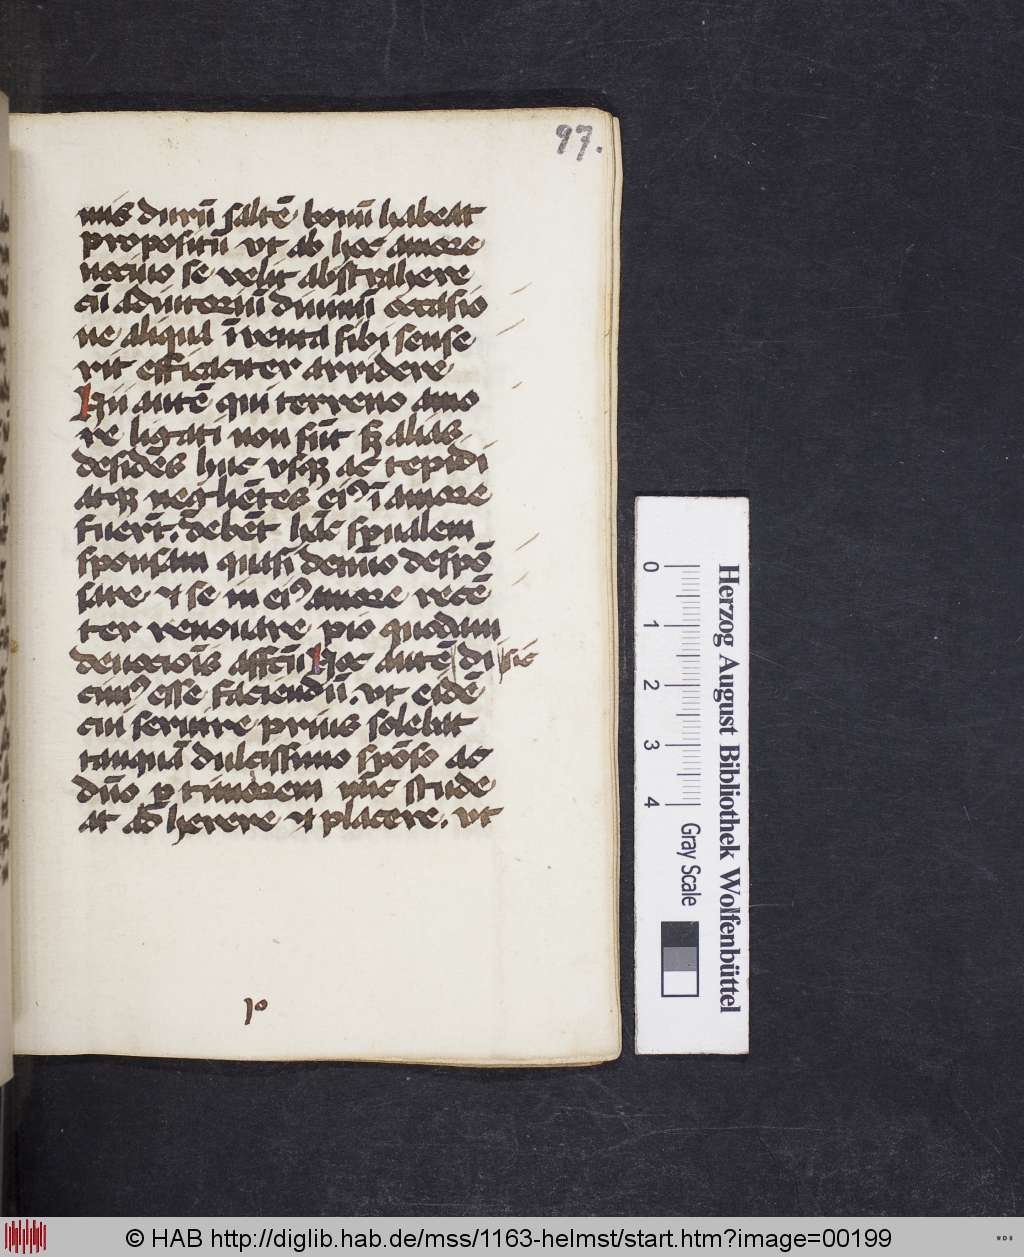 97.
mis durū saltē bonū habeat
propositū vt ab hoc amore
nociuo se velit abstrahere
cū adiutoriū diuinū occasio
ne aliqua īuenta sibi sense
rit efficaciter arridere
Hii autē qui terreno amo
re ligati non sūt sꝫ alias
desidēs huc vsqꝫ ac tepidi
atqꝫ neglīētes eiꝰ ī amore
fuerīt. debēt hāc sp̄ualem
sponsam quasi denuo despō
sare et se in eiꝰ amore recē
ter renouare pio quodam
deuociōis affc̄ū Hoc autē di sic
ciuiꝰ esse faciendū. vt eidē
cui seruire prius solebat
tanquā dulcissimo spōso ac
dn̄o ꝑ timorem nūc stude
at ad herere et placere. vt
1o
0
1
2
3
4
Gray Scale
Herzog August Bibliothek Wolfenbüttel
© HAB http://diglib.hab.de/mss/1163-helmst/start.htm?image=00199